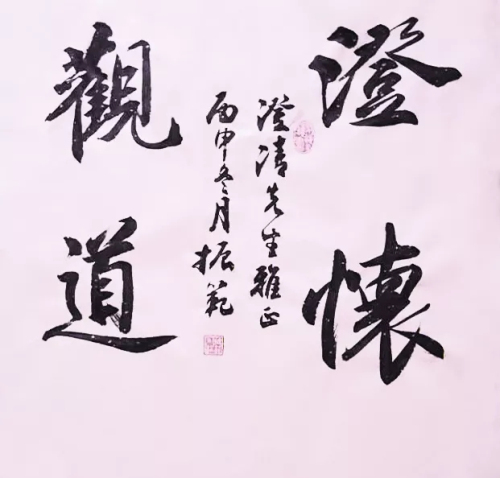 澄懷
觀道
澄清先生雅正
丙申冬月振範